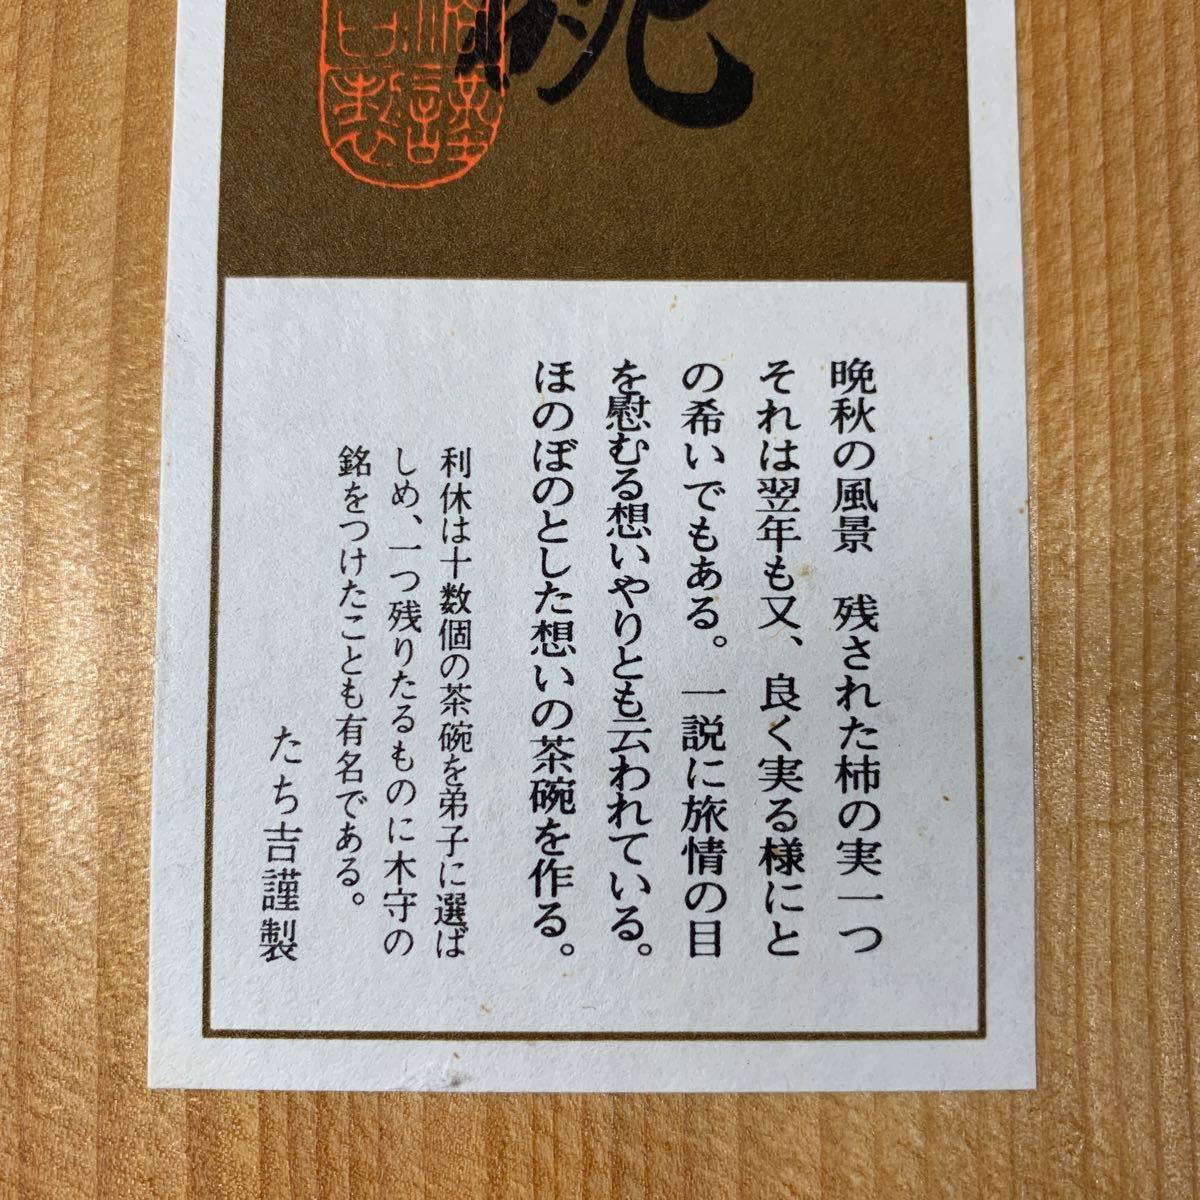 碗
謹製
晩秋の風景　残された柿の実一つ
それは翌年も又、良く実る様にと
の希いでもある。一説に旅情の目
を慰むる想いやりとも云われている。
ほのぼのとした想いの茶碗を作る。
利休は十数個の茶碗を弟子に選ば
しめ、一つ残りたるものに木守の
銘をつけたことも有名である。
たち吉謹製